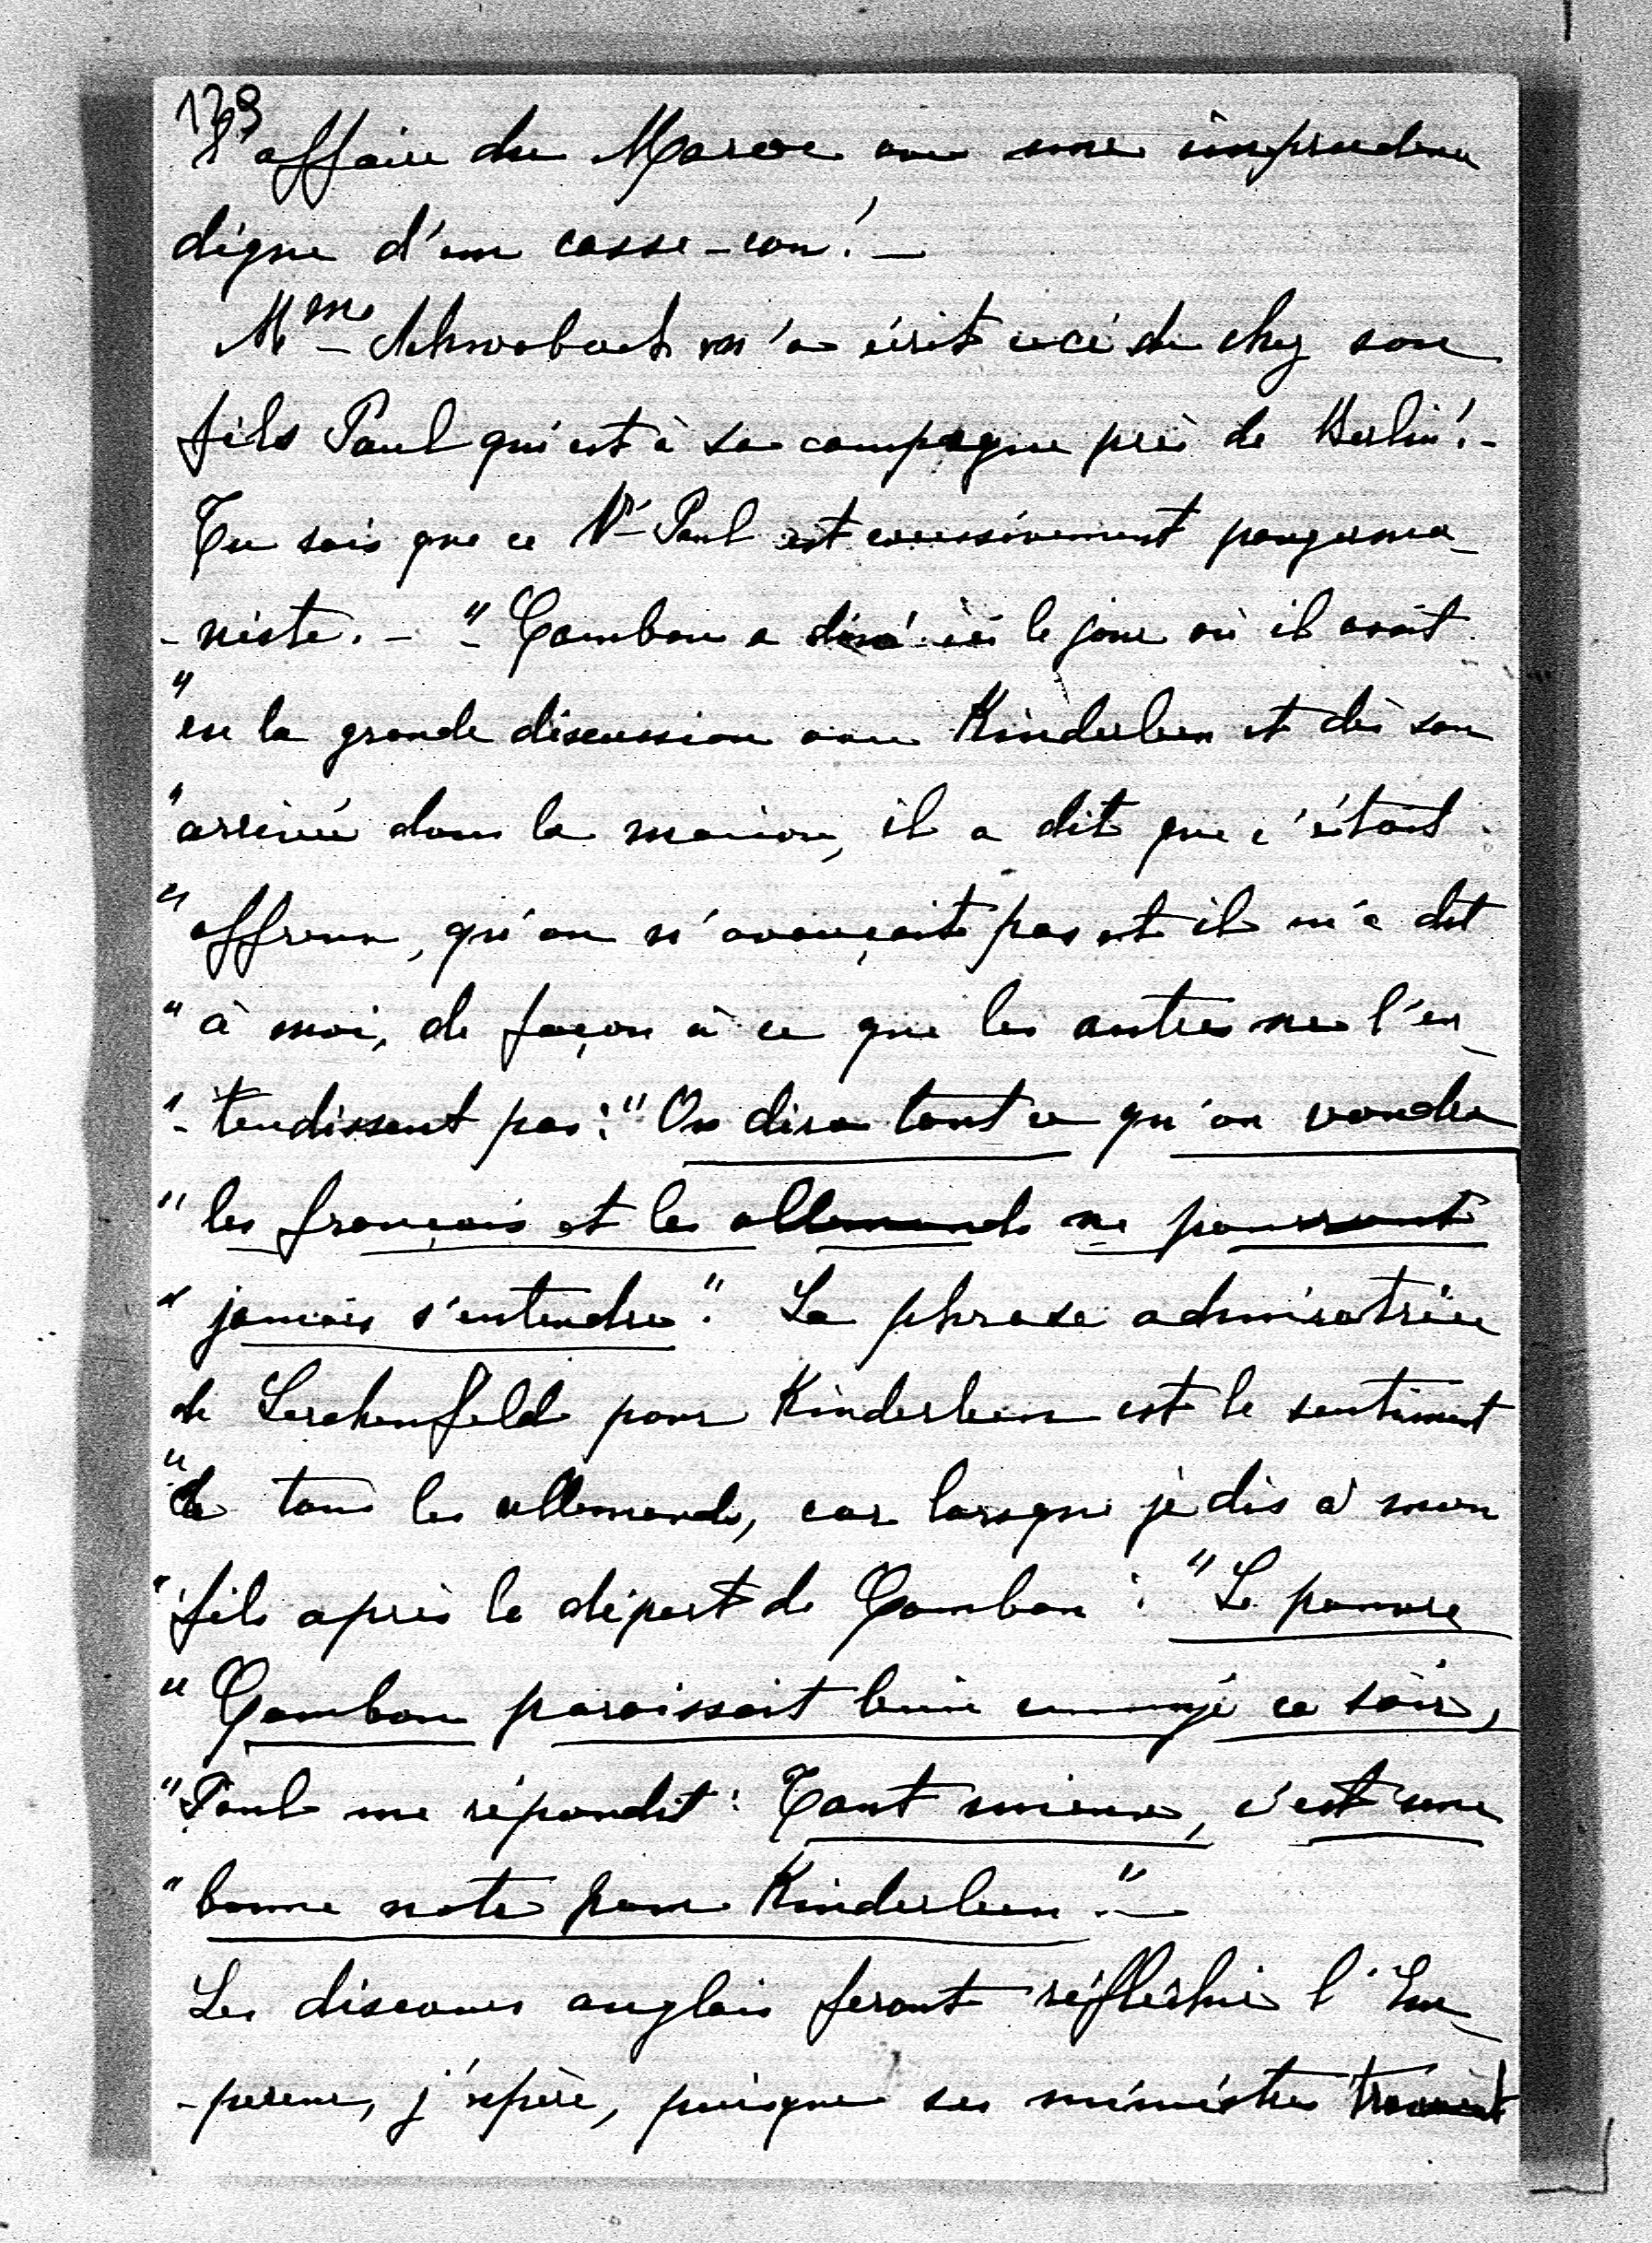 129
l'affaire du Maroc avec une imprudence
digne d'un casse-cou! -
Mme Schwabach m'a écrit ceci de chez son
fils Paul qui est à sa campagne près de Berlin! -
Tu sais que ce Mr Paul est excessivement pangerma-
-niste. - "Cambon a dîné ici le jour où il avait
"eu la grande discussion avec Kinderleen et dès son
"arrivée dans la maison, il a dit que c'était
"affreux, qu'on n'avançait pas et il m'a dit
"à moi, de façon à ce que les autres ne l'en-
"-tendissent pas: "On dira tout ce qu'on voudra
"les français et les allemands ne pourront
"jamais s'entendre". La phrase admiratrice
de Lerchenfeld pour Kinderleen est le sentiment
"de tous les allemands, car lorsque je dis à mon
"fils après le départ de Cambon: "Le pauvre
"Cambon paraissait bien ennuyé ce soir,
"Paul me répondit: Tant mieux, c'est une
"bonne note pour Kinderleen". -
Les discours anglais feront réfléchir l'Em-
-pereur, j'espère, puisque ses ministres